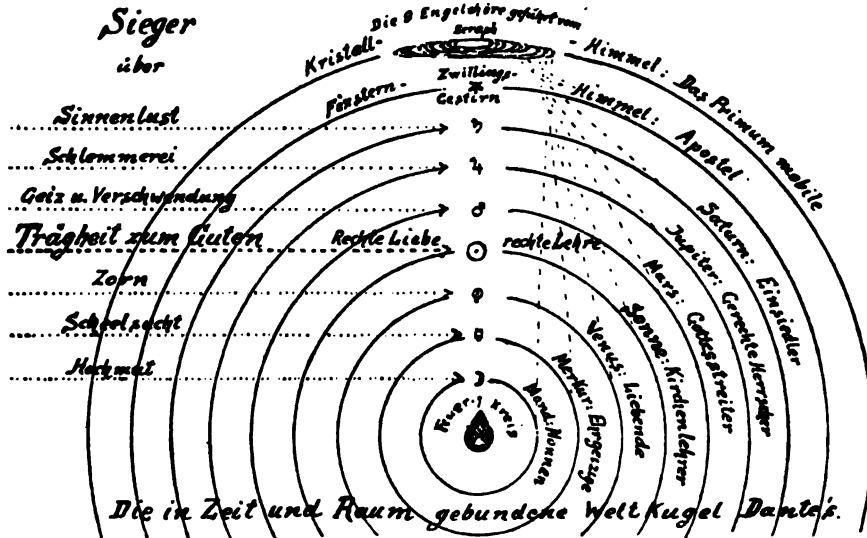 Sieger
über
Sinnenlust
Schlemmerei
Geiz u. Verschwendung
Trägheit zum Guten
Zorn
Scheelsucht
Hochmut
Die 9 Engelchöre geführt vom
Seraph
Kristall- - Himmel: Das Primum mobile
Zwillings-
Gestirn
Fixstern- - Himmel: Apostel
Saturn: Einsiedler
Jupiter: Gerechte Herrscher
Mars: Gottesstreiter
Rechte Liebe
rechte Lehre
Sonne: Kirchenlehrer
Venus: Liebende
Merkur: Ehrgeizige
Mond: Nonnen
Feuer- Kreis
Die in Zeit und Raum gebundene Welt Kugel Dante's.